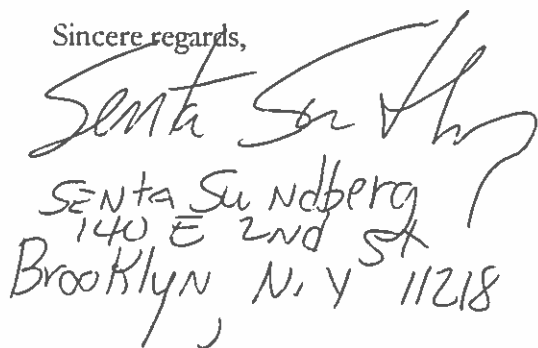 Sincere regards,
Senta Sundberg
SENta SuNdberg
140 E 2Nd St
BrooKlyN, N.Y 11218